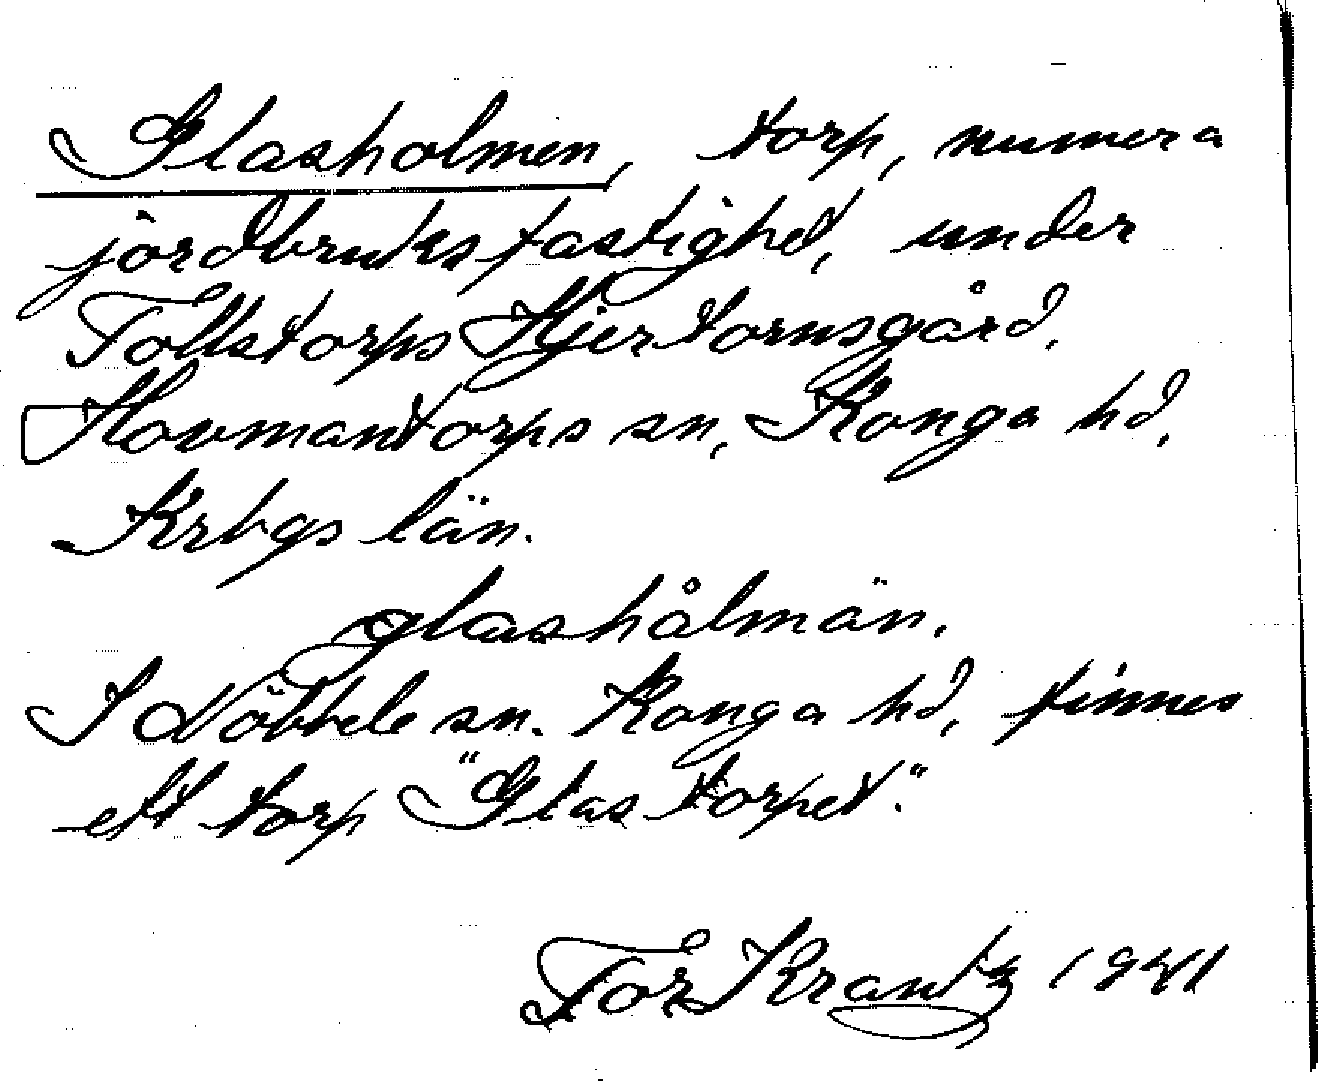 Glasholmen, torp, numera
jordbruksfastighet, under
Tollstorps Hjertornsgård.
Hovmantorps sn, Konga hd,
Krbgs län.
glashålmän.
I Nöbbele sn. Konga hd, finnes
ett torp "Glastorpet."
Tor Krantz 1941